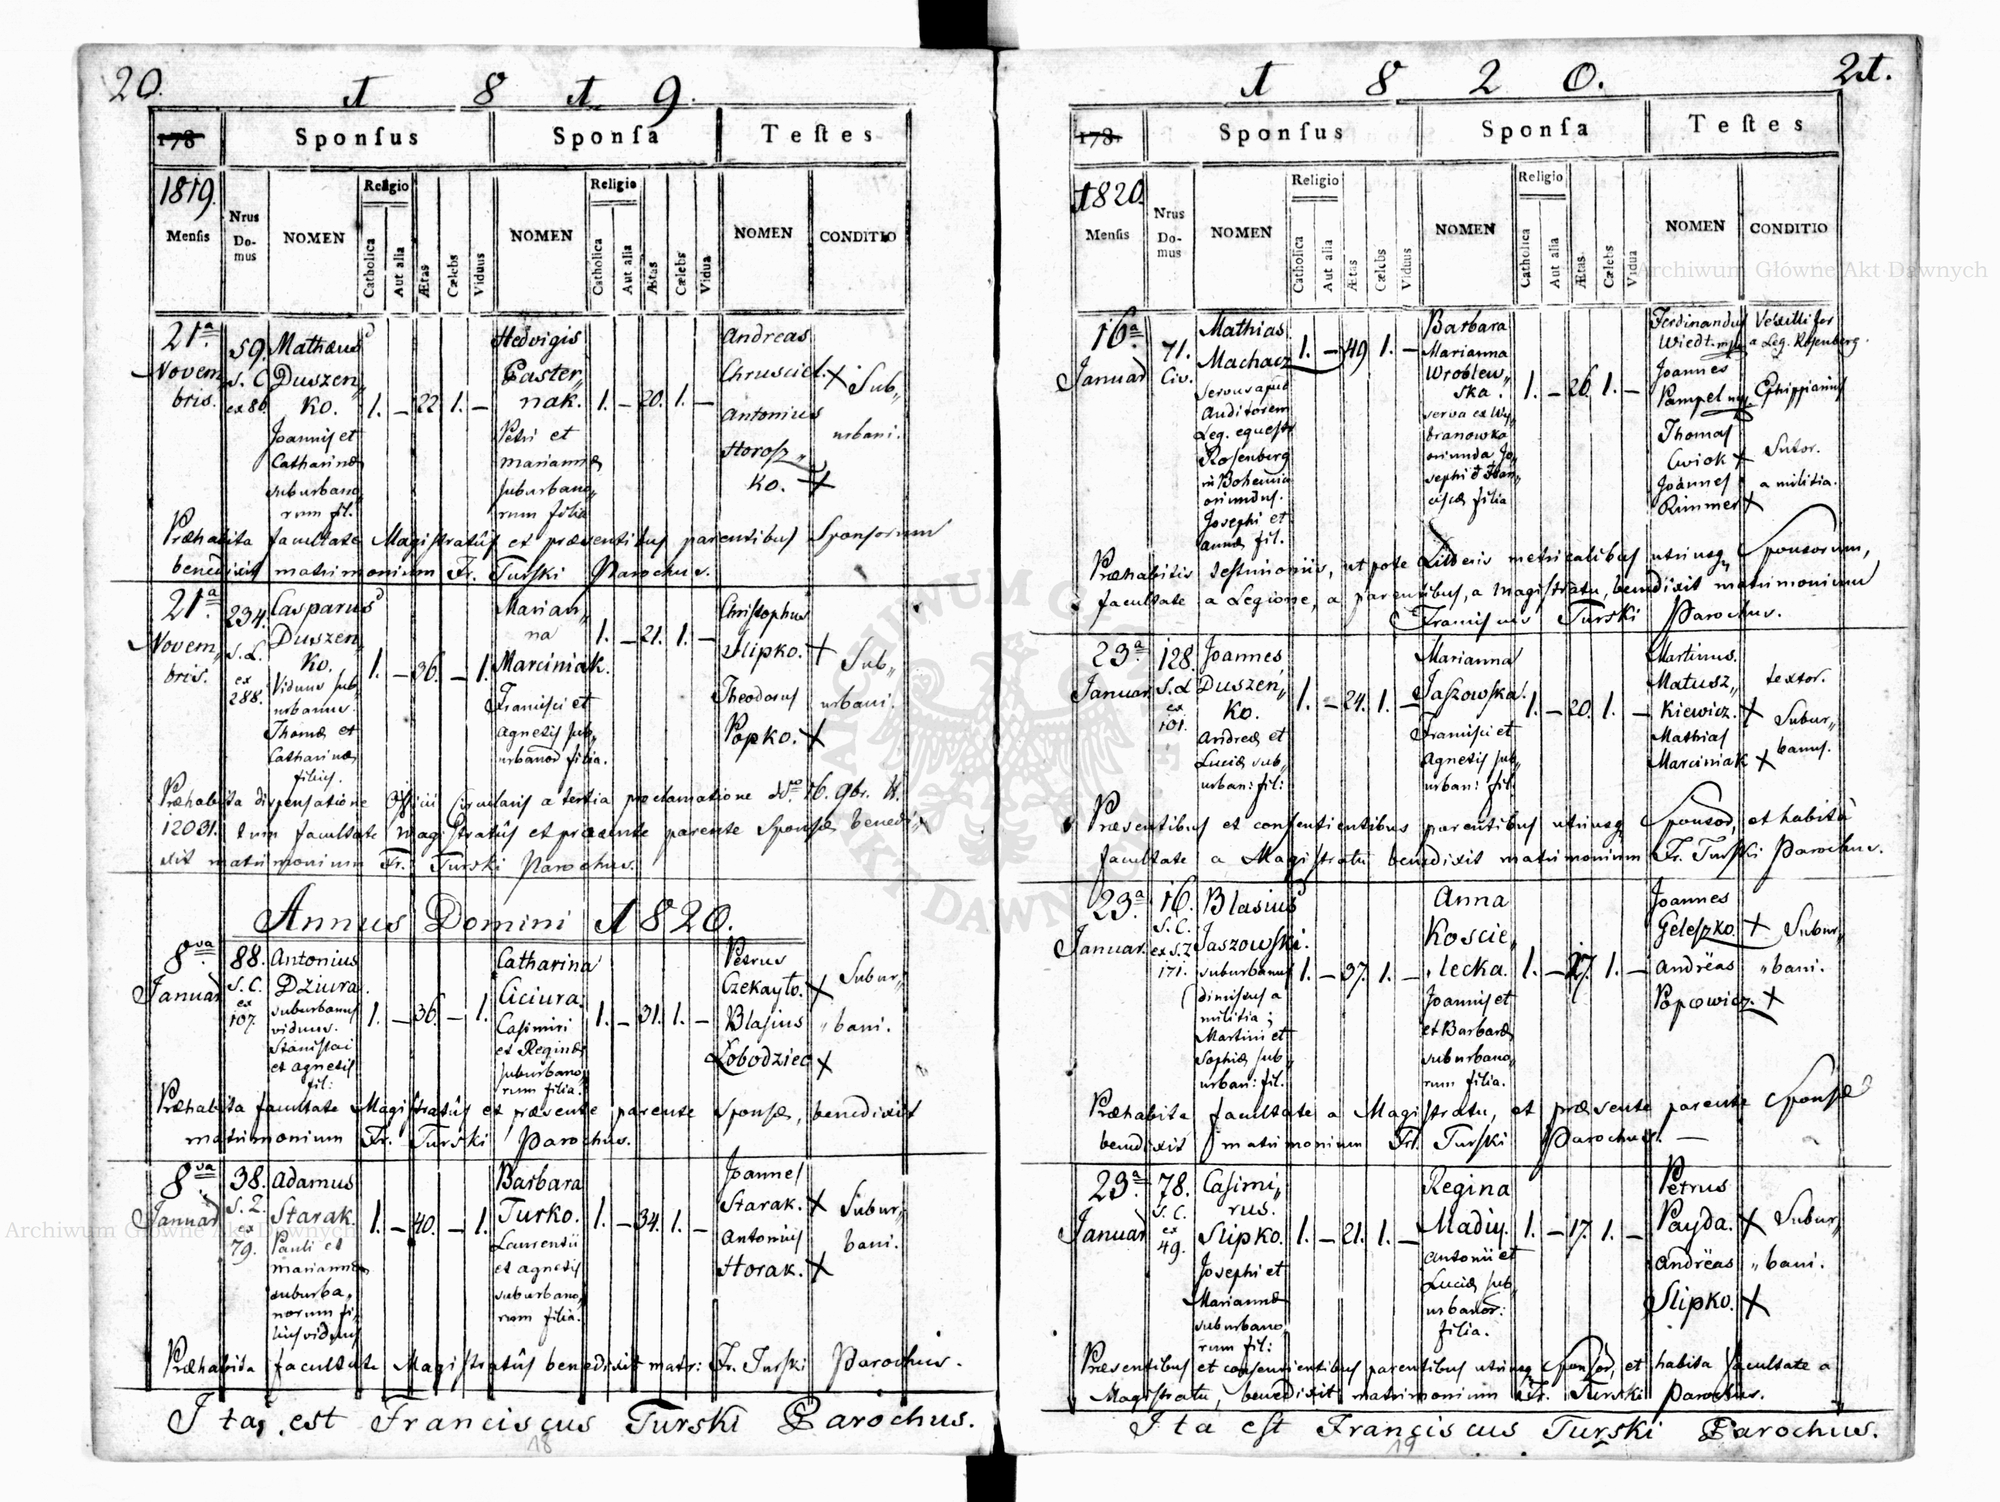 20.
1 8 1 9.
178
Sponſus
Sponſa
Teſtes
1819.
Menſis
Nrus Do- mus
NOMEN
Religio
Catholica
Aut alia
Ætas
Cælebs
Viduus
NOMEN
Religio
Catholica
Aut alia
Ætas
Cælebs
Vidua
NOMEN
CONDITIO
21ª
Novem„
bris.
59.
S. C
ex 86.
Mathæus
Duszen„
ko.
Joannis et
Catharinæ
suburbano„
rum fil.
1. – 22. 1. –
Hedvigis
Paster„
nak.
Petri et
mariannæ
suburbano„
rum filia
1. – 20. 1. –
Andreas
Chrusciel. +
Antonius
Horosz„
ko. +
Sub„
urbani.
Præhabita facultate Magistratûs et præsentibus parentibus Sponsorum
benedixit matrimonium Fr. Turski Parochus.
21ª
Novem„
bris.
234.
S. L.
ex
288.
Casparus
Duszen
ko.
Viduus sub„
urbanus.
Thomæ et
Catharinæ
filius.
1. – 36. – 1.
Marian„
na
Marciniak.
Francisci et
agnetis sub„
urbanor filia.
1. – 21. 1. –
Christophus
Slipko. +
Theodorus
Popko. +
Sub„
urbani.
Præhabita dispensatione Officii Circularis a tertia proclamatione dd. 16. 9br. N.
12031. tum facultate Magistratûs et præsente parente Sponsæ benedi„
xit matrimonium Fr. Turski Parochus.
Annus Domini 1820.
8va
Januar
88.
S. C.
ex
107.
Antonius
Dziura.
suburbanus
viduus.
Stanislai
et agnetis
fil:
1. – 36. – 1.
Catharina
Ciciura.
Casimiri
et Reginæ
suburbano„
rum filia.
1. – 31. 1. –
Petrus
Czekayło. +
Blasius
Łobodziec +
Subur„
„bani.
Præhabita facultate Magistratûs et præsente parente Sponsæ, benedixit
matrimonium Fr. Turski Parochus.
8va
Januar
38.
S. Z.
ex
79.
Adamus
Starak.
Pauli et
mariannæ
suburba„
norum fi„
lius viduus
1. – 40. – 1.
Barbara
Turko.
Laurentii
et agnetis
suburbano„
rum filia.
1. – 34. 1. –
Joannes
Starak. +
Antonius
Horak. +
Subur„
bani.
Præhabita facultate Magistratûs benedixit matr: Fr. Turski Parochus.
Ita est Franciscus Turski Parochus.
18
21.
1 8 2 0.
178.
Sponſus
Sponſa
Teſtes
1820.
Menſis
Nrus Do- mus
NOMEN
Religio
Catholica
Aut alia
Ætas
Cælebs
Viduus
NOMEN
Religio
Catholica
Aut alia
Ætas
Cælebs
Vidua
NOMEN
CONDITIO
16ª
Januar
71.
Civ.
Mathias
Machacz
servus apud
Auditorem
Leg. equestr
Rosenberg
in Bohemia
oriundus.
Josephi et
annæ fil.
1. – 49. 1. –
Barbara
Marianna
Wroblew„
ska.
serva ex Wy„
dranowka
oriunda Jo„
sephi et Fran„
ciscæ filia
1. – 26. 1. –
Ferdinandus
Wiedt
Vexillifer
a Leg. Rosenberg.
Joannes
Pampel
Ephippiarius
Thomas
Cwiok +
Sutor.
Joannes
Rimmer +
a militia.
Præhabitis Testimoniis, ut pote Litteris metricalibus utriusq Sponsorum,
facultate a Legione, a parentibus, a magistratu, benedixit matrimonium
Franciscus Turski Parochus.
23ª
Januar
128.
S. L
ex
101.
Joannes
Duszen„
ko.
Andreæ et
Luciæ sub„
urban: fil:
1. – 24. 1. –
Marianna
Jaszowska.
Francisci et
Agnetis sub„
urban: fil.
1. – 20. 1. –
Martinus
Matusz„
kiewicz. +
textor.
Mathias
Marciniak +
Subur„
banus.
Præsentibus et consentientibus parentibus utriusq Sponsor, et habitâ
facultate a Magistratu benedixit matrimonium Fr. Turski Parochus.
23ª
Januar.
16.
S. C.
ex S. Z
171.
Blasius
Jaszowski.
suburbanus
dimissus a
militia;
Martini et
Sophiæ sub„
urban: fil.
1. – 37. 1. –
Anna
Koscie„
lecka.
Joannis et
et Barbaræ
suburbano„
rum filia.
1. – 27. 1. –
Joannes
Geleszko. +
Andrëas
Popowicz. +
Subur„
„bani.
Præhabita facultate a Magistratu, et præsente parente Sponsæ
benedixit matrimonium Fr. Turski Parochus. –
23ª
Januar
78.
S. C.
ex
49.
Casimi„
rus.
Slipko.
Josephi et
Mariannæ
suburbano„
rum fil:
1. – 21. 1. –
Regina
Madiy.
Antonii et
Luciæ sub„
urbanor:
filia.
1. – 17. 1. –
Petrus
Payda. +
Andrëas
Slipko. +
Subur„
„bani.
Præsentibus et consentientibus parentibus utriusq Sponsor, et habita facultate a
Magistratu, benedixit matrimonium Fr. Turski Parochus.
Ita est Franciscus Turski Parochus.
19
Archiwum Główne Akt Dawnych
Archiwum Główne Akt Dawnych
ARCHIWUM GŁÓWNE AKT DAWNYCH